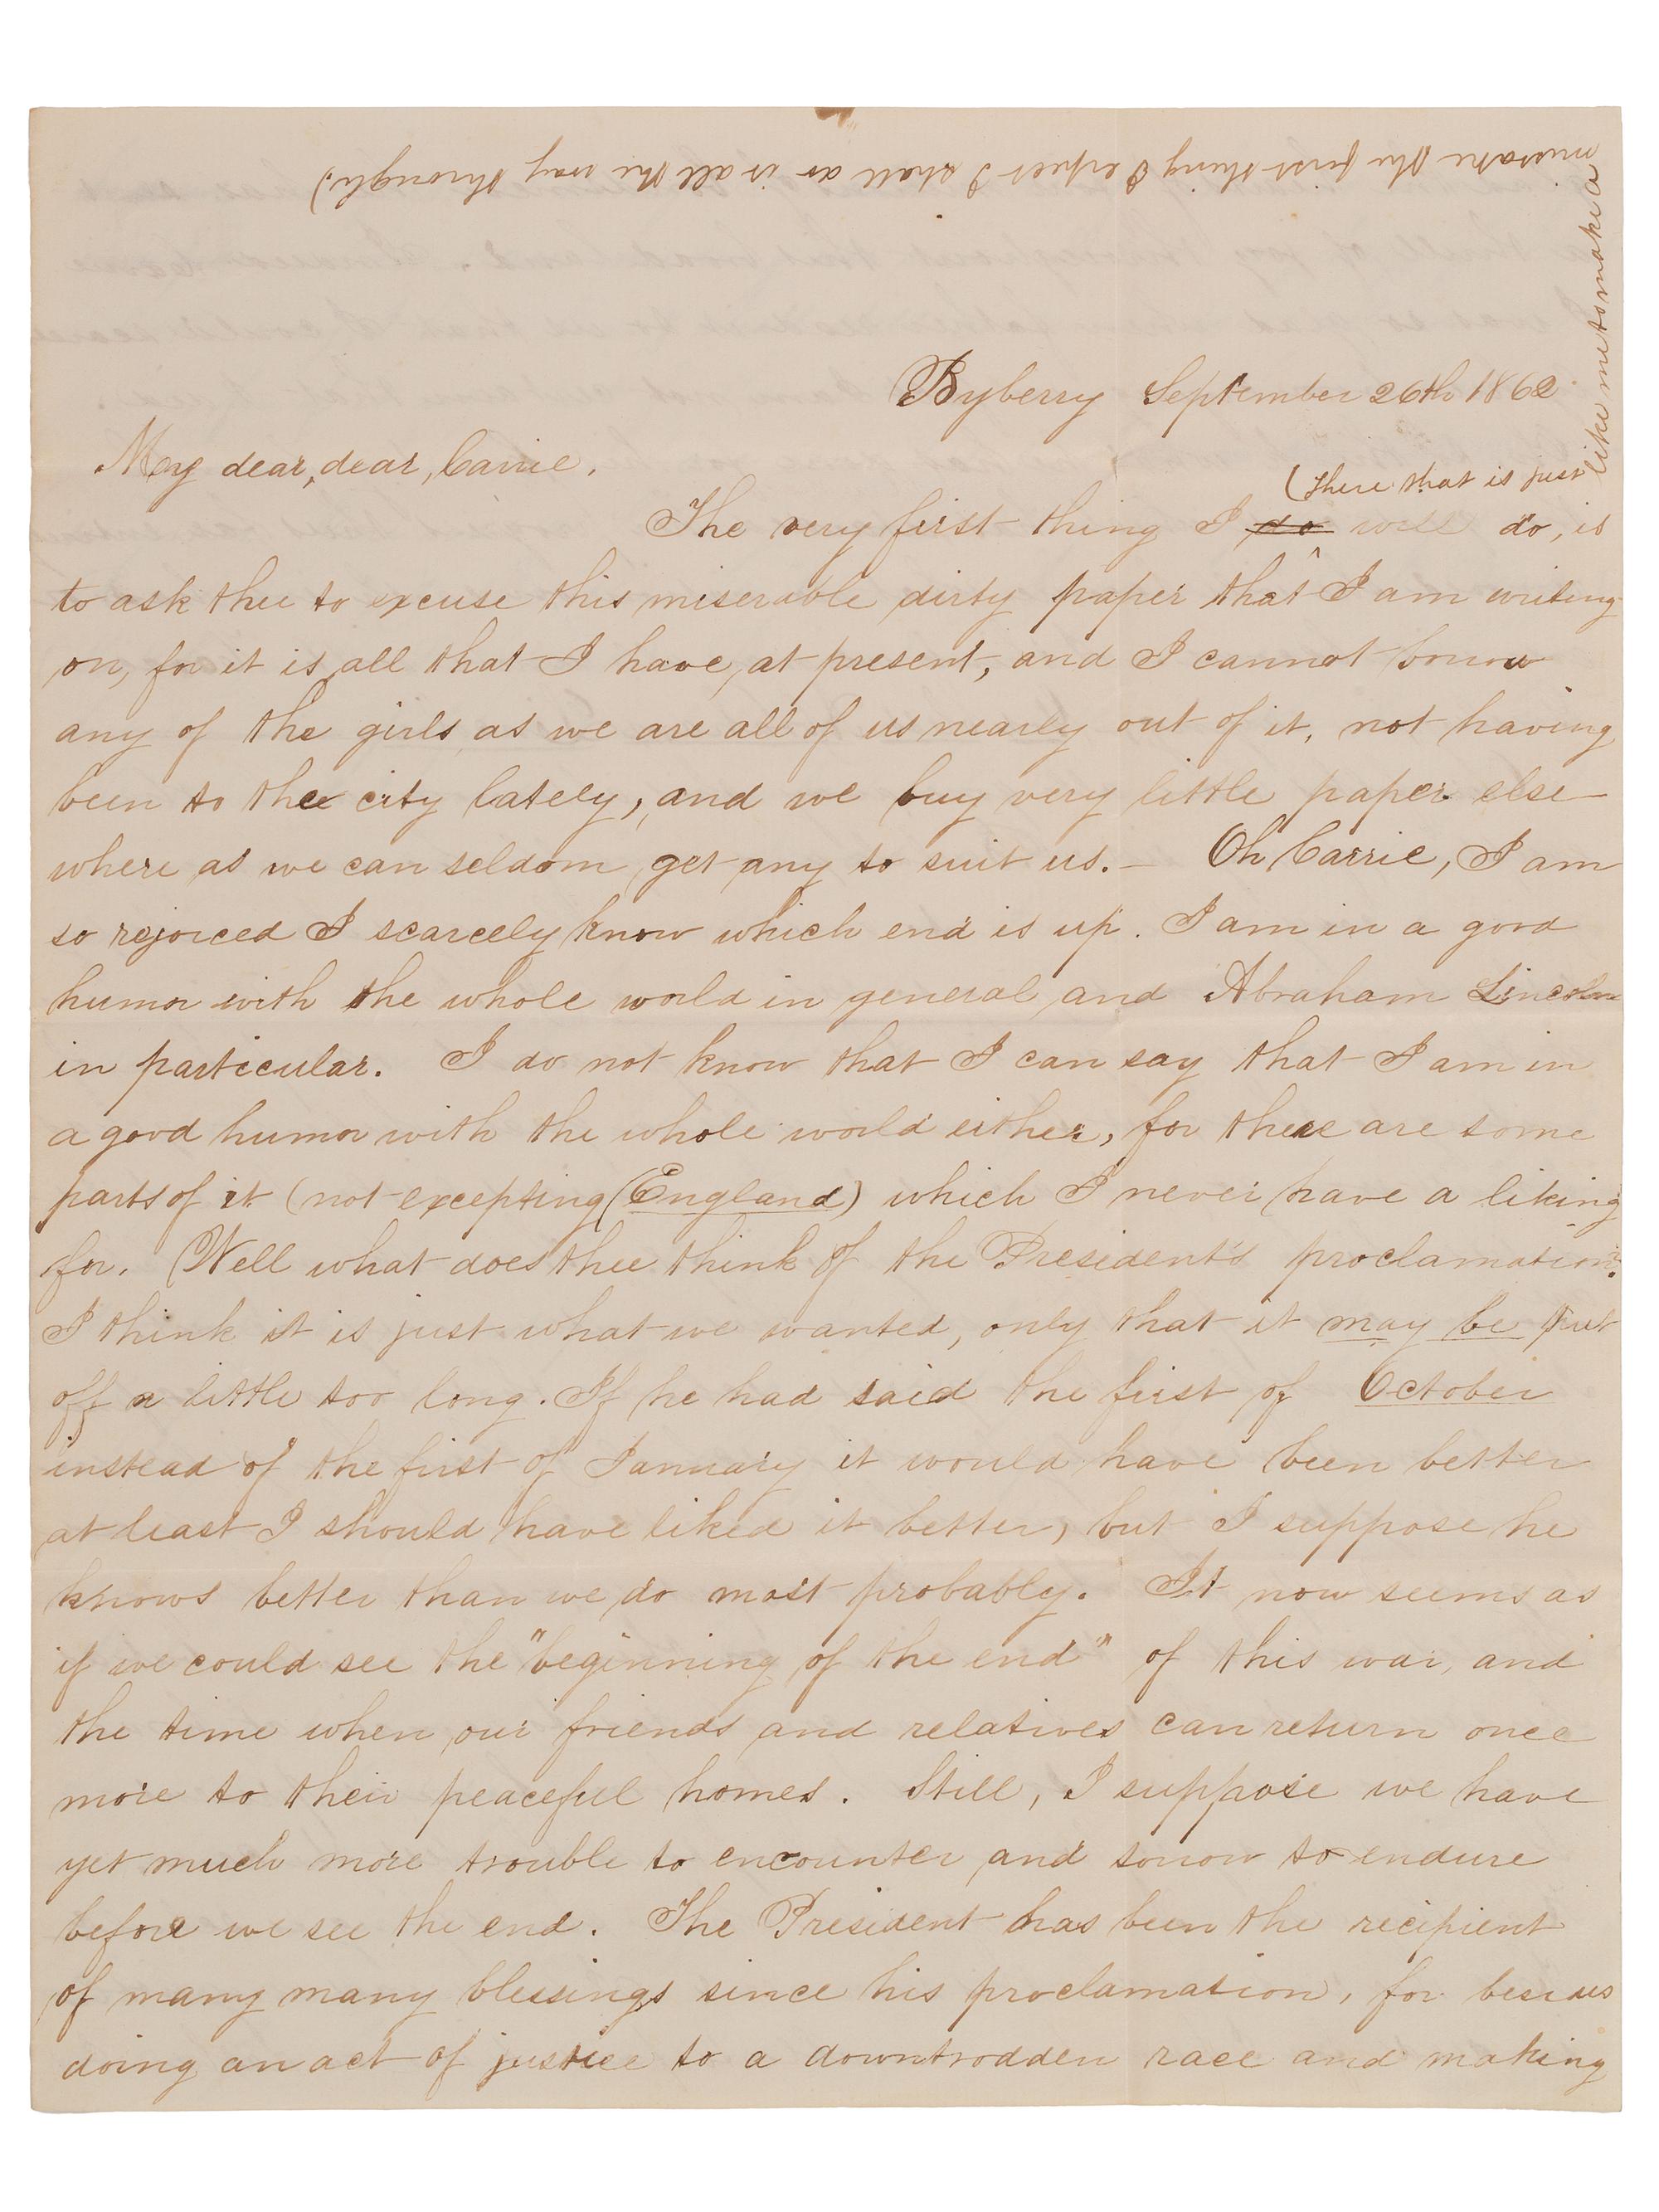 Byberry September 26th 1862.
My dear, dear, Carrie.
(there that is just
like me to make a
mistake the first thing I expect I shall do it all the way through.)
The very first thing I do will do, is
to ask thee to excuse this miserable dirty paper that I am writing
on, for it is all that I have, at present, and I cannot borrow
any of the girls as we are all of us nearly out of it, not having
been to the city lately, and we buy very little paper else
where as we can seldom get any to suit us. — Oh Carrie, I am
so rejoiced I scarcely know which end is up. I am in a good
humor with the whole world in general and Abraham Lincoln
in particular. I do not know that I can say that I am in
a good humor with the whole world either, for there are some
parts of it (not excepting (England) which I never have a liking
for. Well what does thee think of the President's proclamation?
I think it is just what we wanted, only that it may be put
off a little too long. If he had said the first of October
instead of the first of January it would have been better
at least I should have liked it better, but I suppose he
knows better than we do most probably. It now seems as
if we could see the "beginning of the end" of this war, and
the time when our friends and relatives can return once
more to their peaceful homes. Still, I suppose we have
yet much more trouble to encounter and sorrow to endure
before we see the end. The President has been the recipient
of many many blessings since his proclamation, for besides
doing an act of justice to a downtrodden race and making